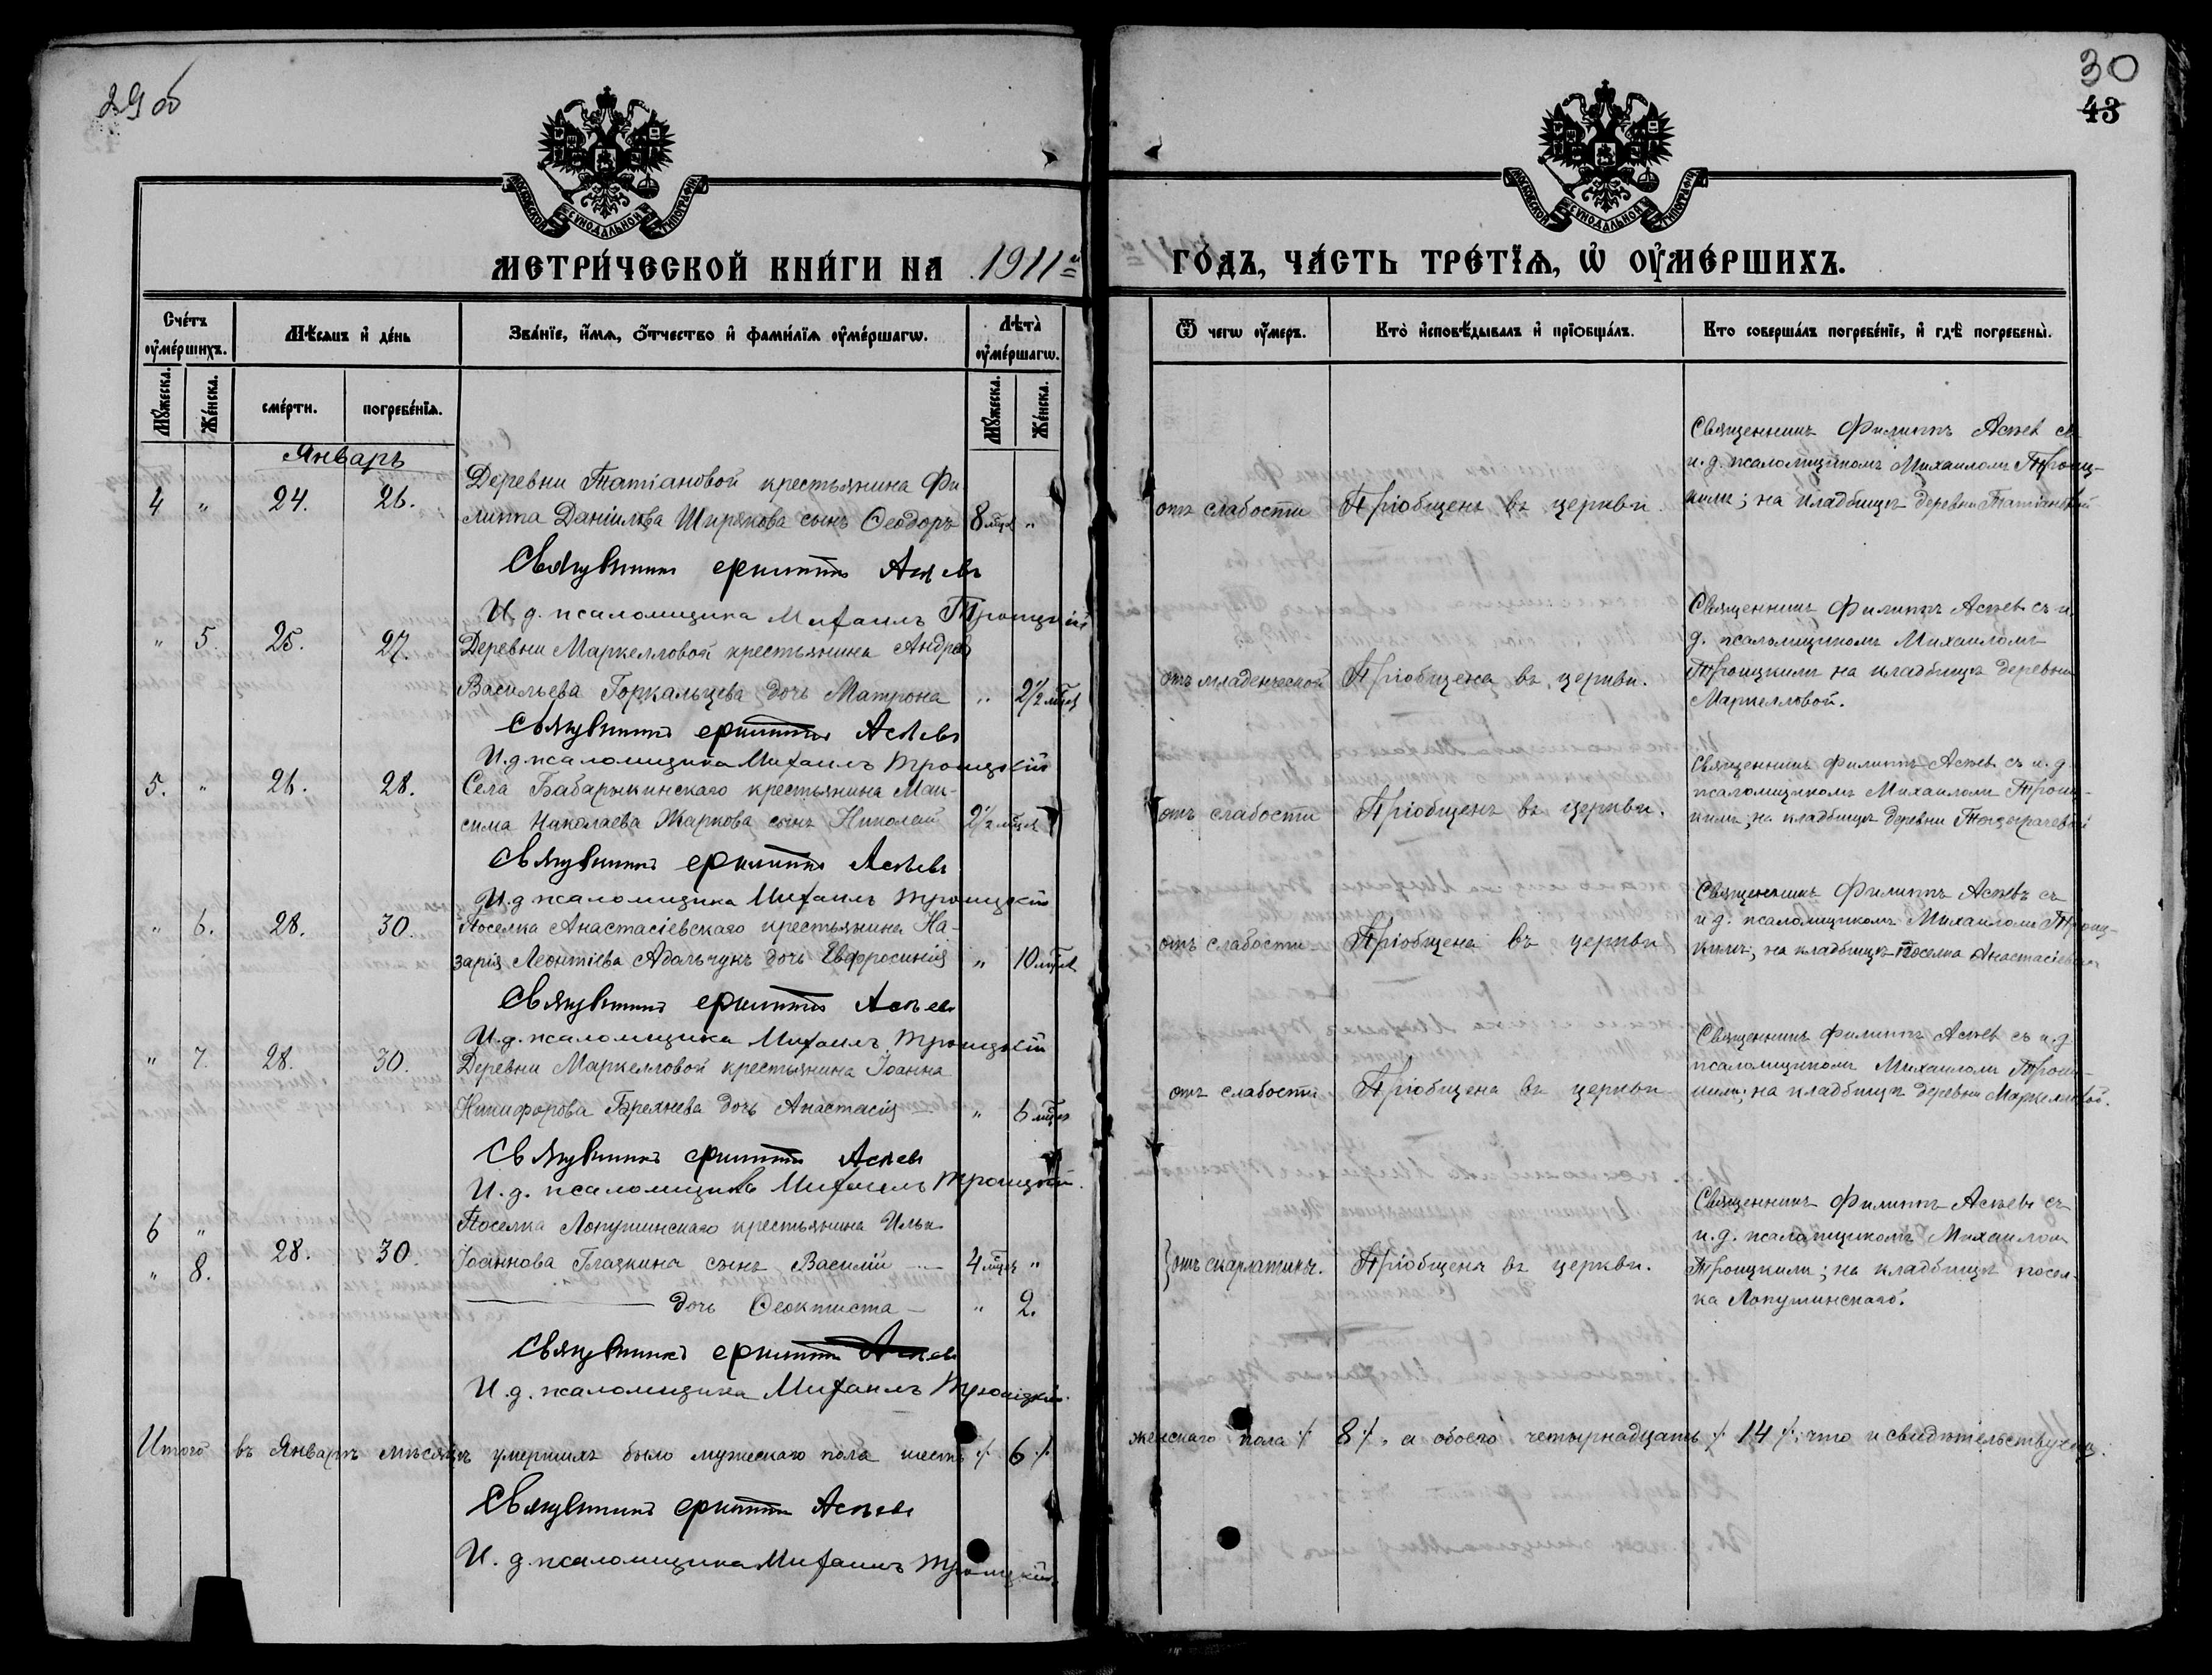 29 об
30
43
МОСКОВСКОЙ СѴНОДАЛЬНОЙ ТИПОГРАФІИ
МОСКОВСКОЙ СѴНОДАЛЬНОЙ ТИПОГРАФІИ
МЕТРИ́ЧЕСКОЙ КНИ́ГИ НА 1911й ГО́ДЪ, ЧА́СТЬ ТРЕ́ТЇѦ, Ѡ҆ ОУ҆МЕ́РШИХЪ.
Сче́тъ оу҆ме́ршихъ.
Мѣ́сѧцъ и҆ де́нь
Зва́нїе, и҆́мѧ, ѻ҆́тчество и҆ фами́лїѧ оу҆ме́ршагѡ.
Лѣта̀ оу҆ме́ршагѡ.
Ѿ чегѡ̀ оу҆́меръ.
Кто̀ и҆сповѣ́дывалъ и҆ прїѻбща́лъ.
Кто соверша́лъ погребе́нїе, и҆ гдѣ̀ погребены̀.
Мꙋ́жеска.
Же́нска.
сме́рти.
погребе́нїѧ.
Мꙋ́жеска.
Же́нска.
Январь
4 " 24. 26.
Деревни Татіановой крестьянина Фи-
липпа Даніилова Ширякова сынъ Ѳеодоръ 8 мѣс. "
отъ слабости
Пріобщенъ въ церкви.
Священникъ Филиппъ Асѣевъ съ
и.д. псаломщикомъ Михаиломъ Троиц-
кимъ; на кладбищѣ деревни Татіановой
Священникъ Филиппъ Асѣевъ
И.д. псаломщика Михаилъ Троицкій
" 5. 25. 27.
Деревни Маркелловой крестьянина Андрея
Васильева Горкальцева дочь Матрона " 2½ мѣс.
отъ младенческой
Пріобщена въ церкви.
Священникъ Филиппъ Асѣевъ съ и.
д. псаломщикомъ Михаиломъ
Троицкимъ на кладбищѣ деревни
Маркелловой.
Священникъ Филиппъ Асѣевъ
И.д. псаломщика Михаилъ Троицкій
5. " 26. 28.
Села Бабарыкинскаго крестьянина Мак-
сима Николаева Жаркова сынъ Николай 2½ мѣс.
отъ слабости
Пріобщенъ въ церкви.
Священникъ Филиппъ Асѣевъ съ и.д.
псаломщикомъ Михаиломъ Троиц-
кимъ; на кладбищѣ деревни
Священникъ Филиппъ Асѣевъ
И.д. псаломщика Михаилъ Троицкій
" 6. 28. 30.
Поселка Анастасіевскаго крестьянина На-
зарія Леонтіева Адальчукъ дочь Евфросинія " 10 мѣс.
отъ слабости
Пріобщена въ церкви
Священникъ Филиппъ Асѣевъ съ
и.д. псаломщикомъ Михаиломъ Троиц-
кимъ; на кладбищѣ поселка Анастасіевскаго
Священникъ Филиппъ Асѣевъ
И.д. псаломщика Михаилъ Троицкій
" 7. 28. 30.
Деревни Маркелловой крестьянина Іоанна
Никифорова Брехнева дочь Анастасія — " 6 мѣс.
отъ слабости
Пріобщена въ церкви
Священникъ Филиппъ Асѣевъ съ и.д.
псаломщикомъ Михаиломъ Троиц-
кимъ; на кладбищѣ деревни Маркелловой.
Священникъ Филиппъ Асѣевъ
И.д. псаломщика Михаилъ Троицкій.
6 "
Поселка Лопушинскаго крестьянина Ильи
" 8. 28. 30.
Іоаннова Глазкина сынъ Василій — 4 мѣс. "
— дочь Ѳеоктиста — " 2.
отъ скарлатины.
Пріобщены въ церкви.
Священникъ Филиппъ Асѣевъ съ
и.д. псаломщикомъ Михаиломъ
Троицкимъ; на кладбищѣ посел-
ка Лопушинскаго.
Священникъ Филиппъ Асѣевъ
И.д. псаломщика Михаилъ Троицкій.
Итого въ Январѣ мѣсяцѣ умершихъ было мужескаго пола шесть ⁒ 6 ⁒ женскаго пола ⁒ 8 ⁒, а обоего четырнадцать ⁒ 14 ⁒, что и свидѣтельствуемъ.
Священникъ Филиппъ Асѣевъ
И.д. псаломщика Михаилъ Троицкій